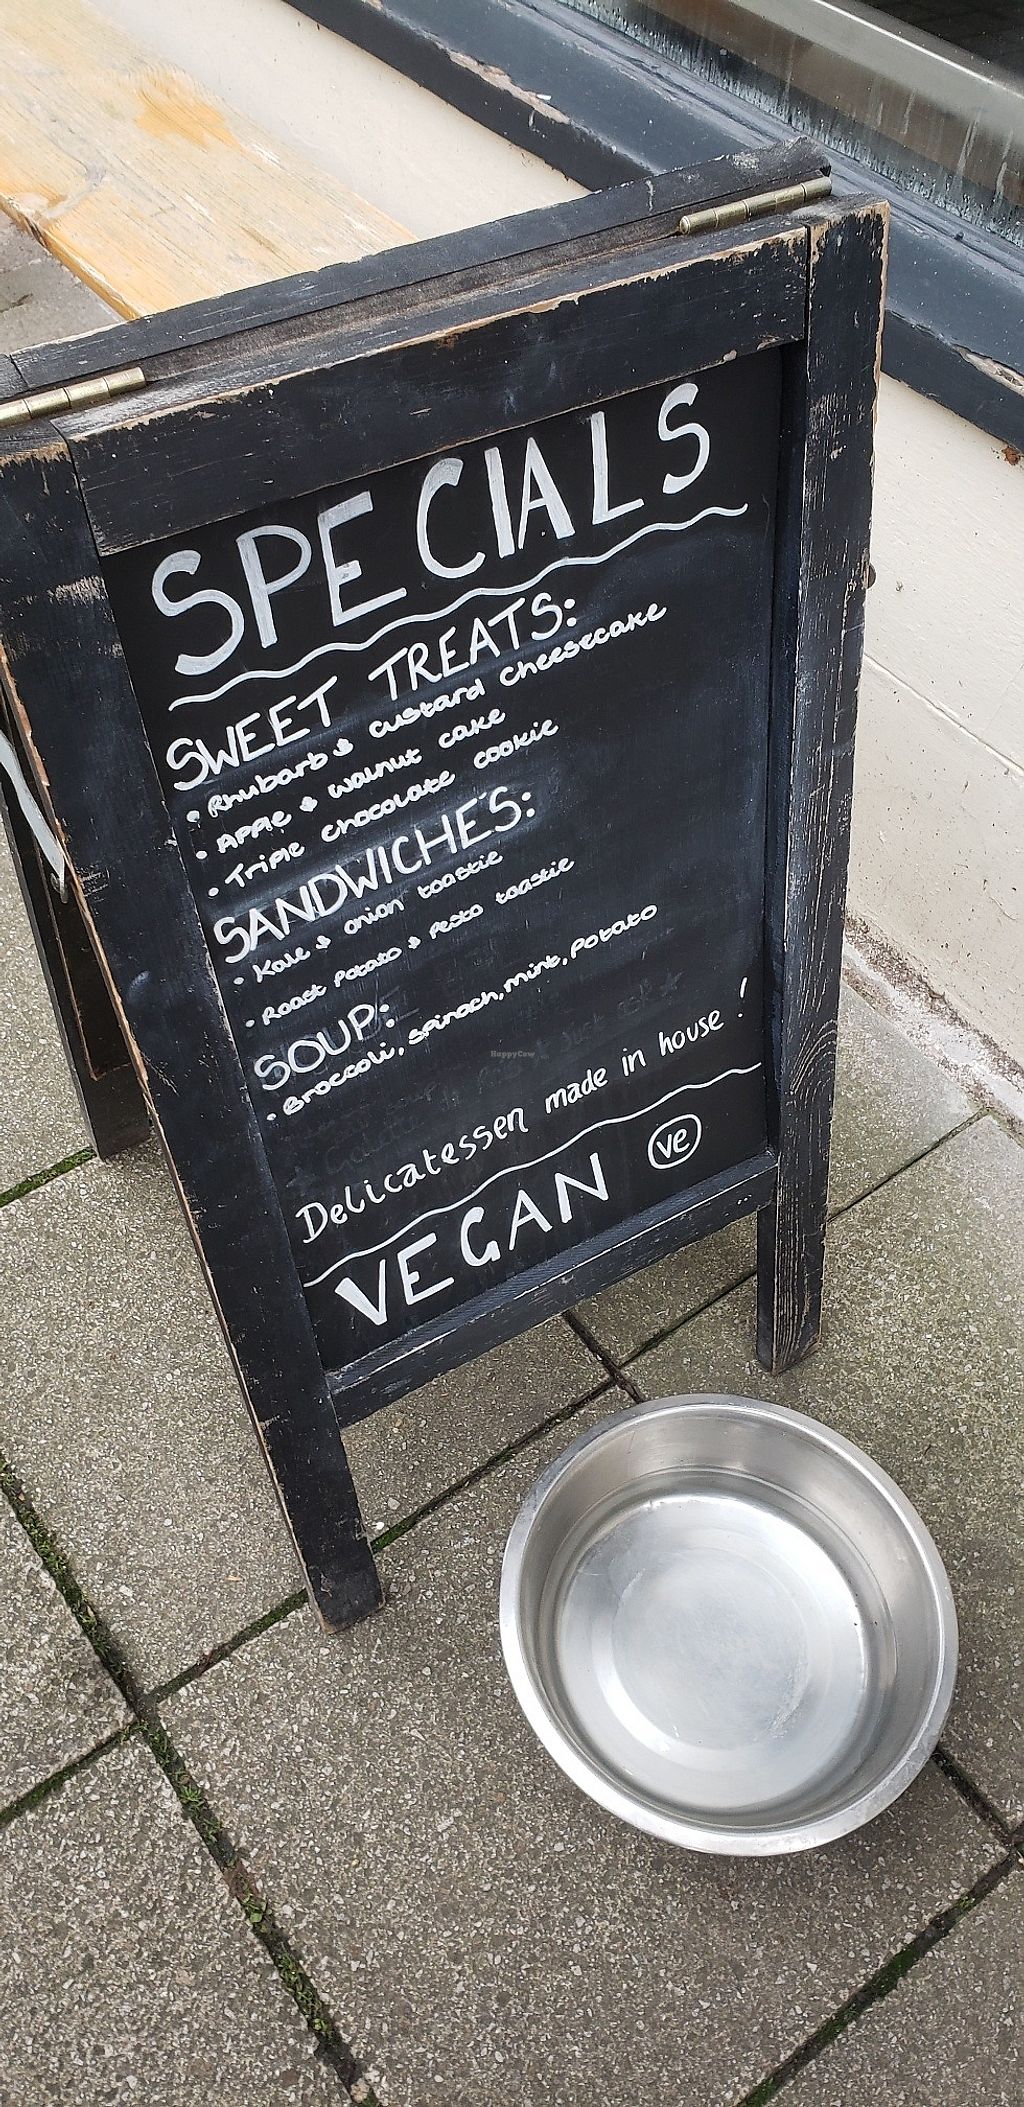 SPECIALS
SWEET TREATS:
• Rhubarb & custard cheesecake
• Apple & walnut cake
• Triple chocolate cookie
SANDWICHES:
• Kale & onion toastie
• Roast Potato & Pesto toastie
SOUP:
• Broccoli, spinach, mint, Potato
HappyCow
Delicatessen made in house !
VEGAN ve